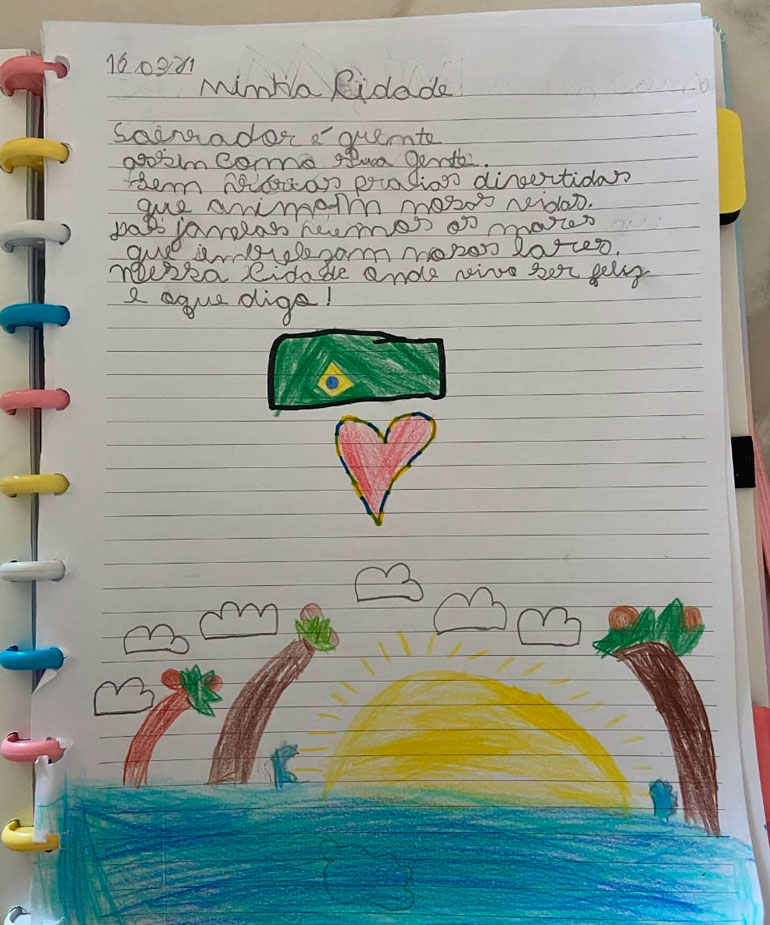 16.03.21
Minha Cidade
Salvador é quente
assim como sua gente.
tem várias praias divertidas
que animam nosas vidas.
das janelas vemos os mares
que imbelezam nosos lares.
nessa cidade onde vivo ser feliz
e oque digo!